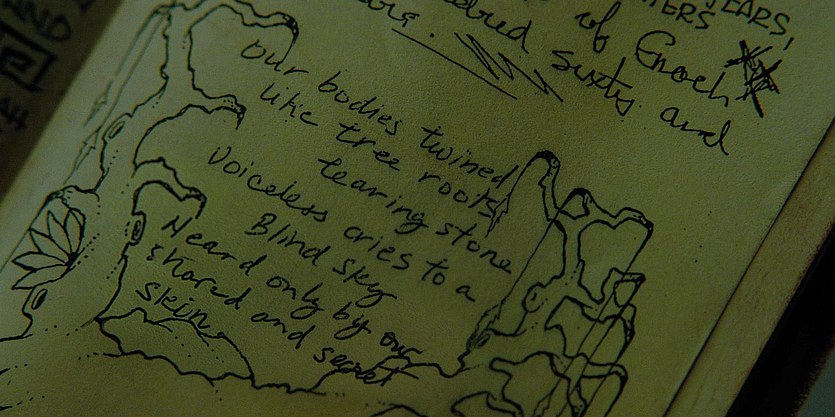 YEARS,
of Enoch
sixty and
Our bodies twined
like tree roots
tearing stone
Voiceless cries to a
Blind sky
Heard only by our
shared and secret
skin